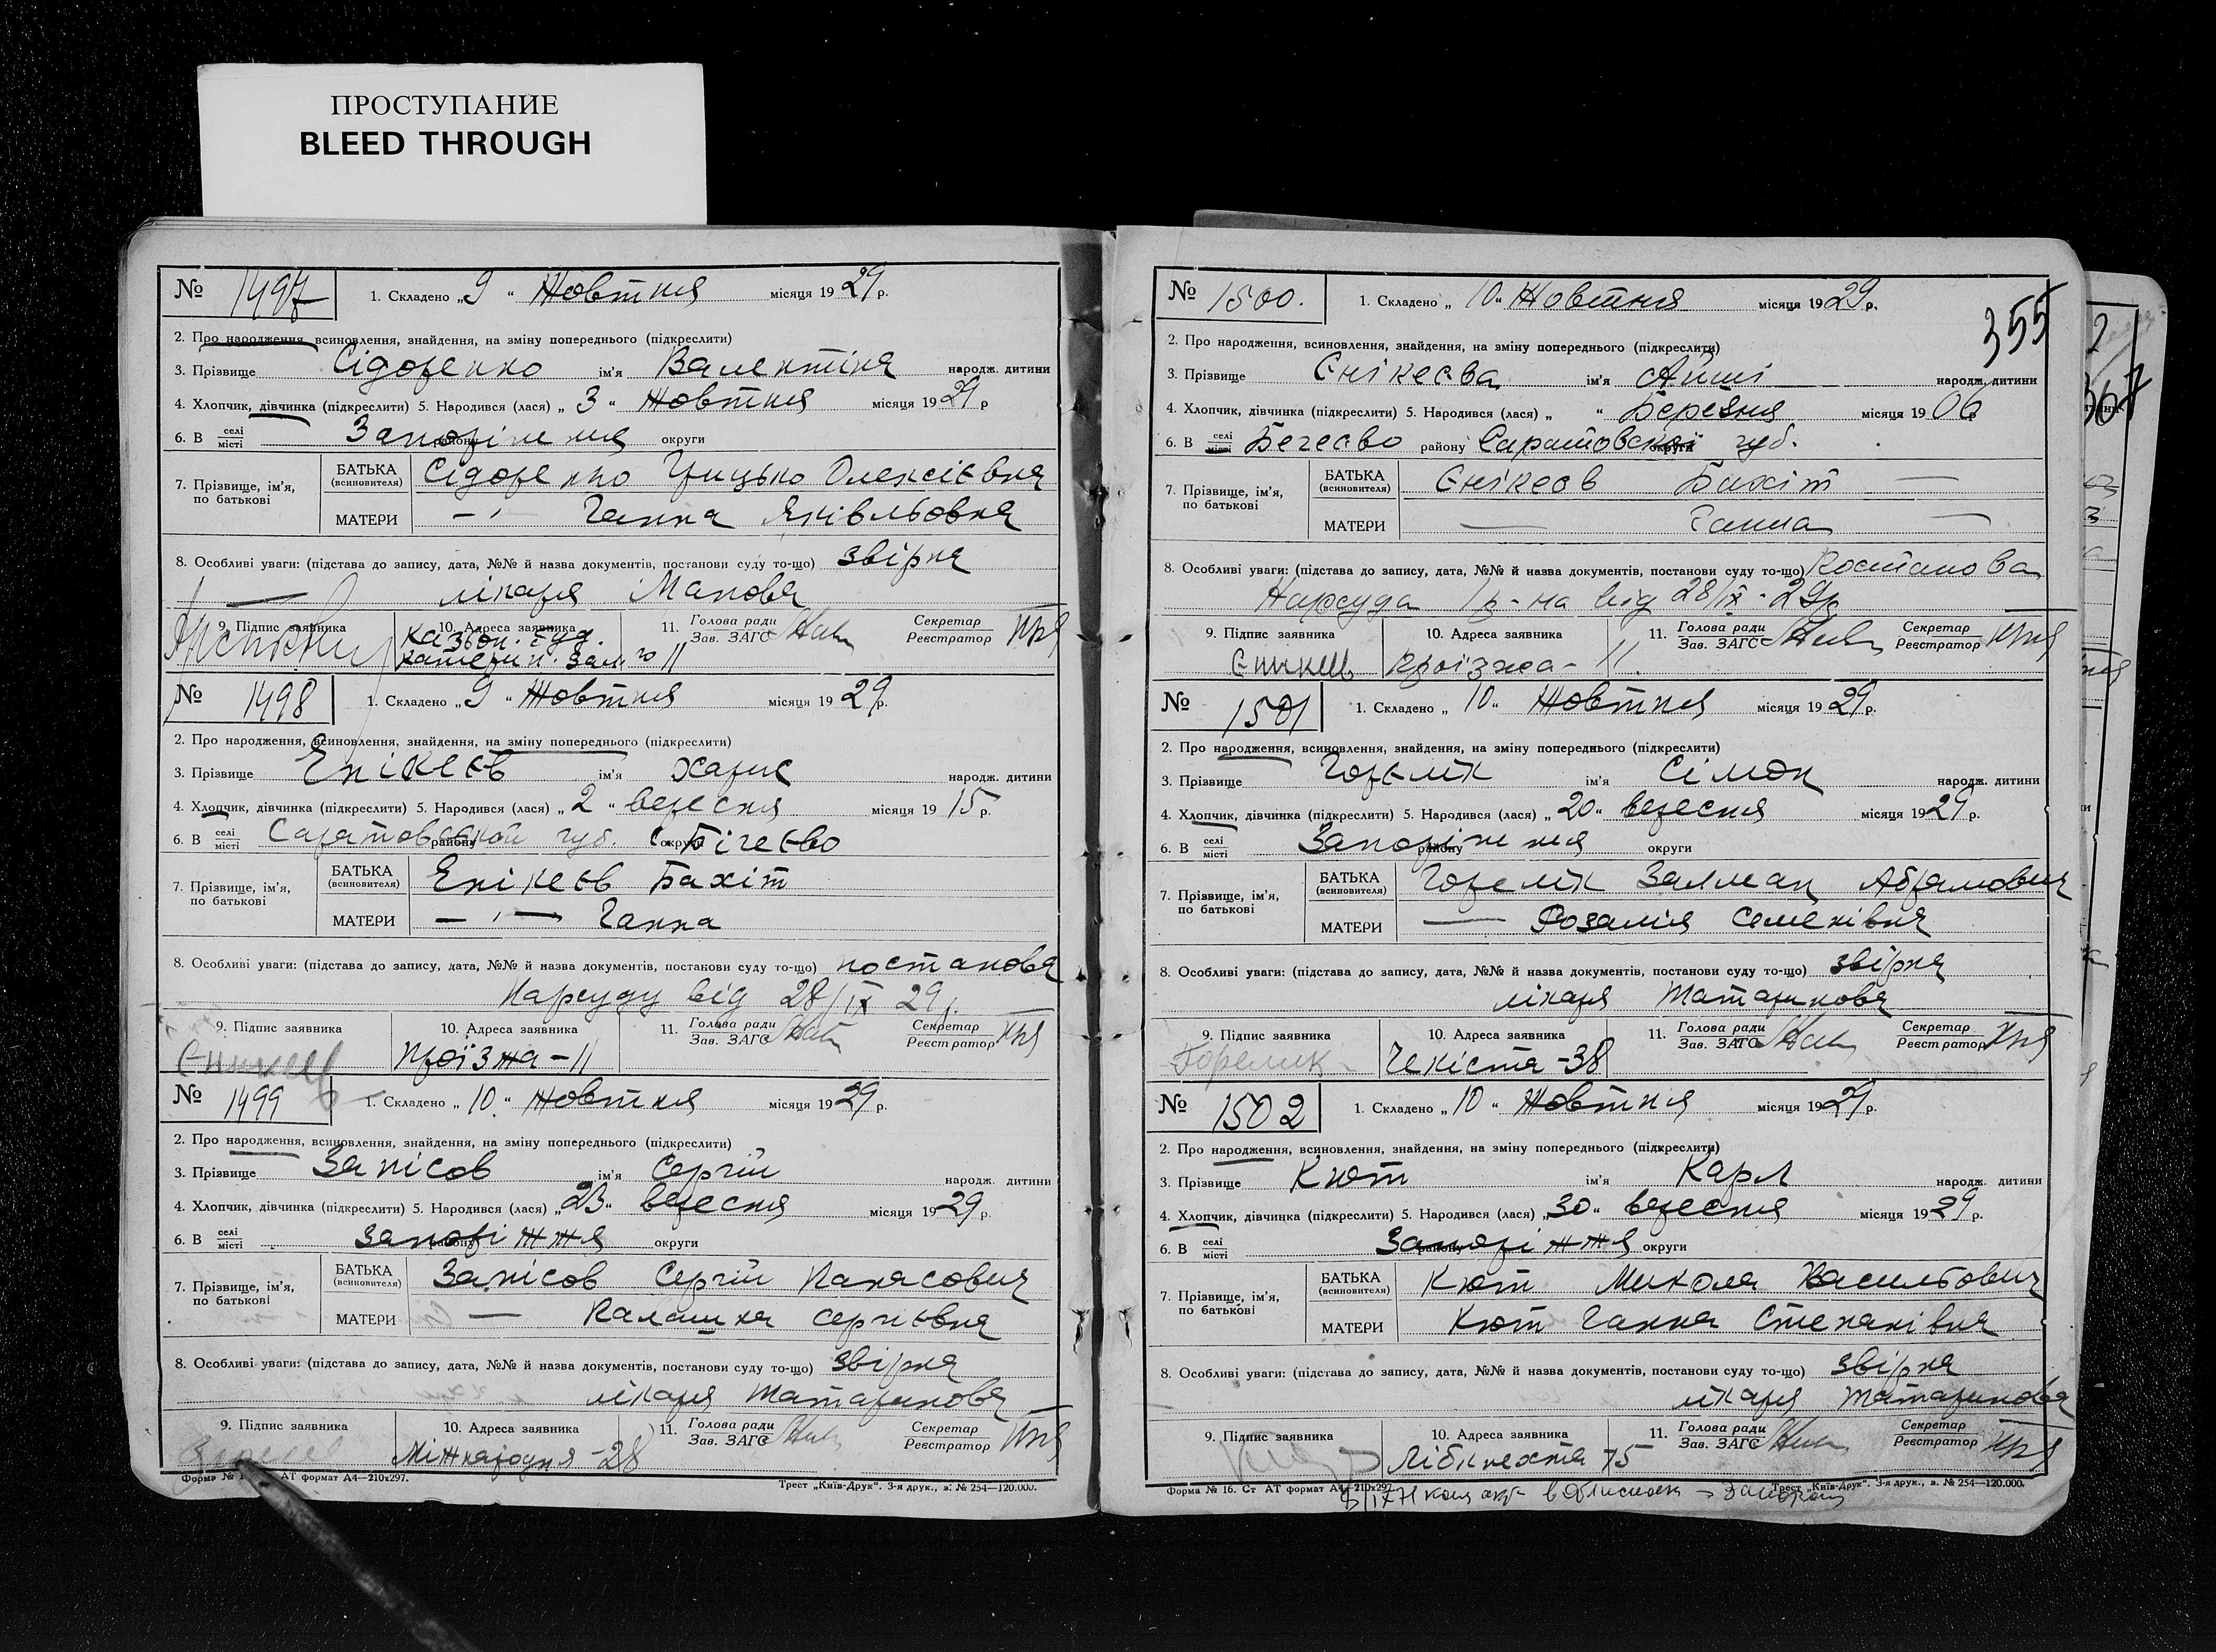 ПРОСТУПАНИЕ
BLEED THROUGH
№ 1497 1. Складено „9“ Жовтня місяця 1929 р.
2. Про народження, всиновлення, знайдення, на зміну попереднього (підкреслити)
3. Прізвище Сідоренко ім'я Валентіна народж. дитини
4. Хлопчик, дівчинка (підкреслити) 5. Народився (лася) „3“ Жовтня місяця 1929 р
6. В селі місті Запоріжжя району округи
7. Прізвище, ім'я, по батькові
БАТЬКА (всиновителя) Сідоренко Грицько Олексієвич
МАТЕРИ —"— Ганна Яківльовна
8. Особливі уваги: (підстава до запису, дата, №№ й назва документів, постанови суду то-що) звірка
лікаря
9. Підпис заявника 10. Адреса заявника 11. Голова ради Зав. ЗАГС Секретар Реєстратор
№ 1498 1. Складено „9“ Жовтня місяця 1929 р.
2. Про народження, всиновлення, знайдення, на зміну попереднього (підкреслити)
3. Прізвище Енікеєв ім'я Харис народж. дитини
4. Хлопчик, дівчинка (підкреслити) 5. Народився (лася) „2“ вересня місяця 1915 р.
6. В селі місті Саратовской губ. району с. Бігеєво округи
7. Прізвище, ім'я, по батькові
БАТЬКА (всиновителя) Енікеєв Бахіт
МАТЕРИ —"— Ганна
8. Особливі уваги: (підстава до запису, дата, №№ й назва документів, постанови суду то-що) постанова
Нарсуду від 28/IX 29 р.
9. Підпис заявника 10. Адреса заявника 11. Голова ради Зав. ЗАГС Секретар Реєстратор
Проїзжа – 11
№ 1499 1. Складено „10“ Жовтня місяця 1929 р.
2. Про народження, всиновлення, знайдення, на зміну попереднього (підкреслити)
3. Прізвище Занісов ім'я Сергій народж. дитини
4. Хлопчик, дівчинка (підкреслити) 5. Народився (лася) „23“ вересня місяця 1929 р.
6. В селі місті Запоріжжя району округи
7. Прізвище, ім'я, по батькові
БАТЬКА (всиновителя) Занісов Сергій Панасович
МАТЕРИ — Сергієвна
8. Особливі уваги: (підстава до запису, дата, №№ й назва документів, постанови суду то-що) звірка
лікаря Татаринова
9. Підпис заявника 10. Адреса заявника 11. Голова ради Зав. ЗАГС Секретар Реєстратор
Міжнародня – 28
Форма № АТ формат А4—210x297. Трест „Київ-Друк“. 3-я друк., з. № 254—120.000.
355
№ 1500. 1. Складено „10“ Жовтня місяця 1929 р.
2. Про народження, всиновлення, знайдення, на зміну попереднього (підкреслити)
3. Прізвище Єнікеєва ім'я Айші народж. дитини
4. Хлопчик, дівчинка (підкреслити) 5. Народився (лася) „ “ Березня місяця 1906
6. В селі місті Бегеєво району Саратовскої губ. округи
7. Прізвище, ім'я, по батькові
БАТЬКА (всиновителя) Єнікеєв Бахіт —
МАТЕРИ — Ганна —
8. Особливі уваги: (підстава до запису, дата, №№ й назва документів, постанови суду то-що) Постанова
Нарсуда 1 р-на від 28/IX - 29 р.
9. Підпис заявника 10. Адреса заявника 11. Голова ради Зав. ЗАГС Секретар Реєстратор
Проїзжа – 11.
№ 1501 1. Складено „10“ Жовтня місяця 1929 р.
2. Про народження, всиновлення, знайдення, на зміну попереднього (підкреслити)
3. Прізвище Горелік ім'я Сімон народж. дитини
4. Хлопчик, дівчинка (підкреслити) 5. Народився (лася) „20“ вересня місяця 1929 р.
6. В селі місті Запоріжжя району округи
7. Прізвище, ім'я, по батькові
БАТЬКА (всиновителя) Горелік Залман Абрамович
МАТЕРИ — Розалія Семенівна
8. Особливі уваги: (підстава до запису, дата, №№ й назва документів, постанови суду то-що) звірка
лікаря Татаринова
9. Підпис заявника 10. Адреса заявника 11. Голова ради Зав. ЗАГС Секретар Реєстратор
Горелик Чекіста – 38
№ 1502 1. Складено „10“ Жовтня місяця 1929 р.
2. Про народження, всиновлення, знайдення, на зміну попереднього (підкреслити)
3. Прізвище Кют ім'я Карл народж. дитини
4. Хлопчик, дівчинка (підкреслити) 5. Народився (лася) „30“ вересня місяця 1929 р.
6. В селі місті Запоріжжя району округи
7. Прізвище, ім'я, по батькові
БАТЬКА (всиновителя) Кют Микола Васильович
МАТЕРИ Кют Ганна Степанівна
8. Особливі уваги: (підстава до запису, дата, №№ й назва документів, постанови суду то-що) звірка
лікаря Татаринова
9. Підпис заявника 10. Адреса заявника 11. Голова ради Зав. ЗАГС Секретар Реєстратор
Лібкнехта 75
Форма № 16. Ст АТ формат А4—210x297. Трест „Київ-Друк“. 3-я друк., в. № 254—120.000.